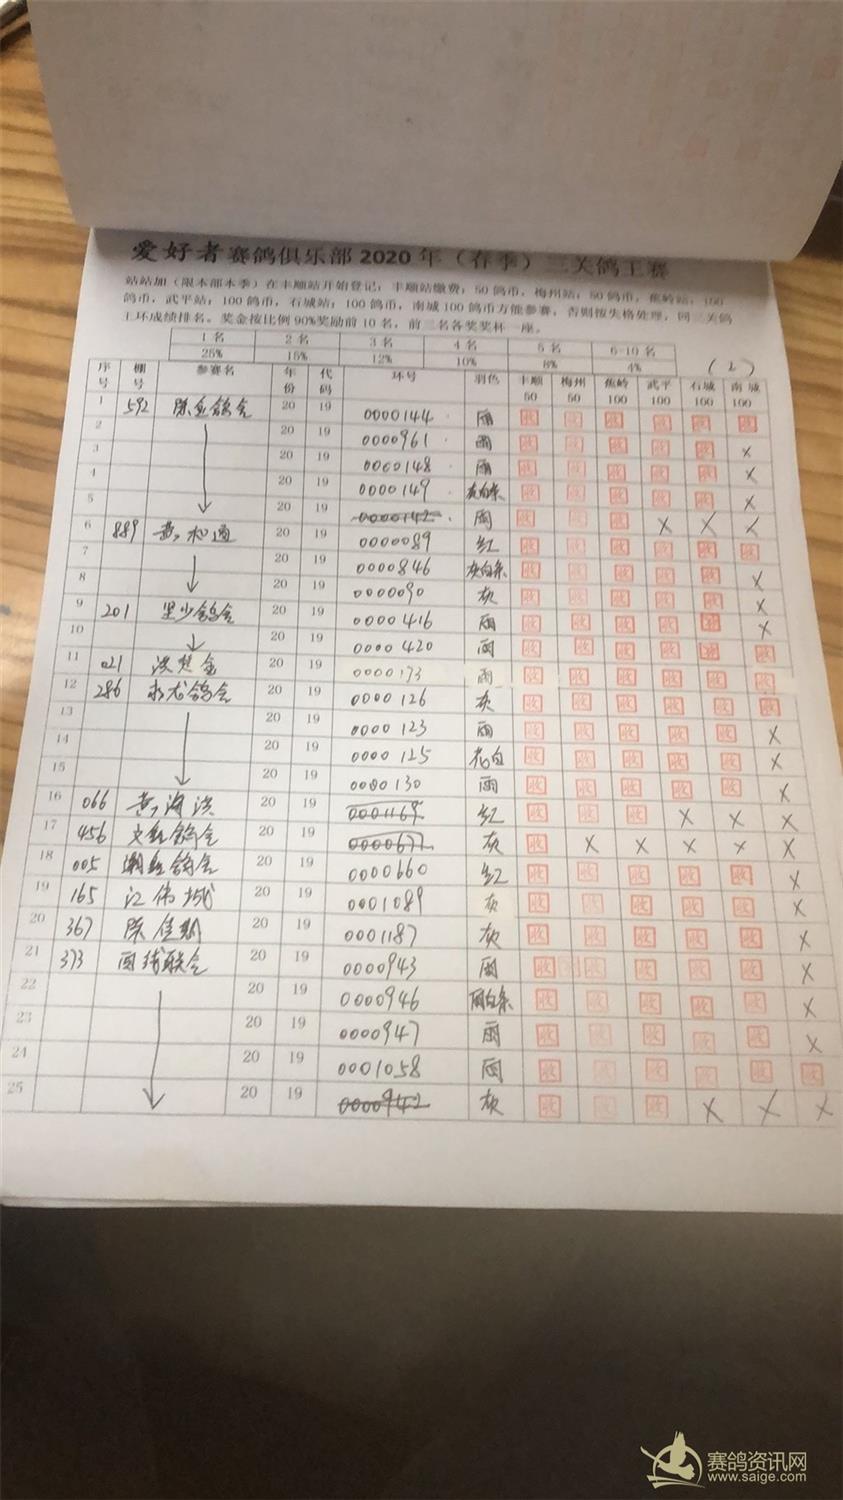 爱好者赛鸽俱乐部2020年（春季）三关鸽王赛
站站加（限本部本季）在丰顺站开始登记：丰顺站缴费：50鸽币，梅州站：50鸽币，蕉岭站：100
鸽币，武平站：100鸽币，石城站：100鸽币，南城100鸽币方能参赛，否则按失格处理，同三关鸽
王环成绩排名。奖金按比例90%奖励前10名，前三名各奖奖杯一座。
1名 2名 3名 4名 5名 6-10名
25% 15% 12% 10% 8% 4% (2)
序号 棚号 参赛名 年份 代码 环号 羽色 丰顺50 梅州50 蕉岭100 武平100 石城100 南城100
1 592 陈金鸽舍 20 19 0000144 雨 收 收 收 收 收 收
2 20 19 0000961 雨 收 收 收 收 收 X
3 20 19 0000148 雨 收 收 收 收 收 X
4 20 19 0000149 灰白条 收 收 收 收 收 X
5 20 19 0000142 雨 收 收 收 X X X
6 889 黄和通 20 19 0000089 红 收 收 收 收 收 收
7 20 19 0000846 灰白条 收 收 收 收 收 X
8 20 19 0000090 灰 收 收 收 收 收 X
9 201 坚少鸽舍 20 19 0000416 雨 收 收 收 收 收 X
10 20 19 0000420 雨 收 收 收 收 收 收
11 021 20 19 0000173 雨 收 收 收 收 收 收
12 286 鸽舍 20 19 0000126 灰 收 收 收 收 收 收
13 20 19 0000123 雨 收 收 收 收 收 X
14 20 19 0000125 花白 收 收 收 收 收 X
15 20 19 0000130 雨 收 收 收 收 收 X
16 066 黄海滨 20 19 0001169 红 收 收 收 X X X
17 456 鸽舍 20 19 0000677 灰 收 X X X X X
18 005 鸽舍 20 19 0000660 红 收 收 收 收 收 X
19 165 江伟城 20 19 0001089 灰 收 收 收 收 收 X
20 367 陈佳 20 19 0001187 灰 收 收 收 收 收 X
21 373 联合 20 19 0000943 雨 收 收 收 收 收 收 X
22 20 19 0000946 雨白条 收 收 收 收 收 X
23 20 19 0000947 雨 收 收 收 收 收 X
24 20 19 0001058 雨 收 收 收 收 收 收
25 20 19 0000942 灰 收 收 收 X X X
赛鸽资讯网
www.saige.com